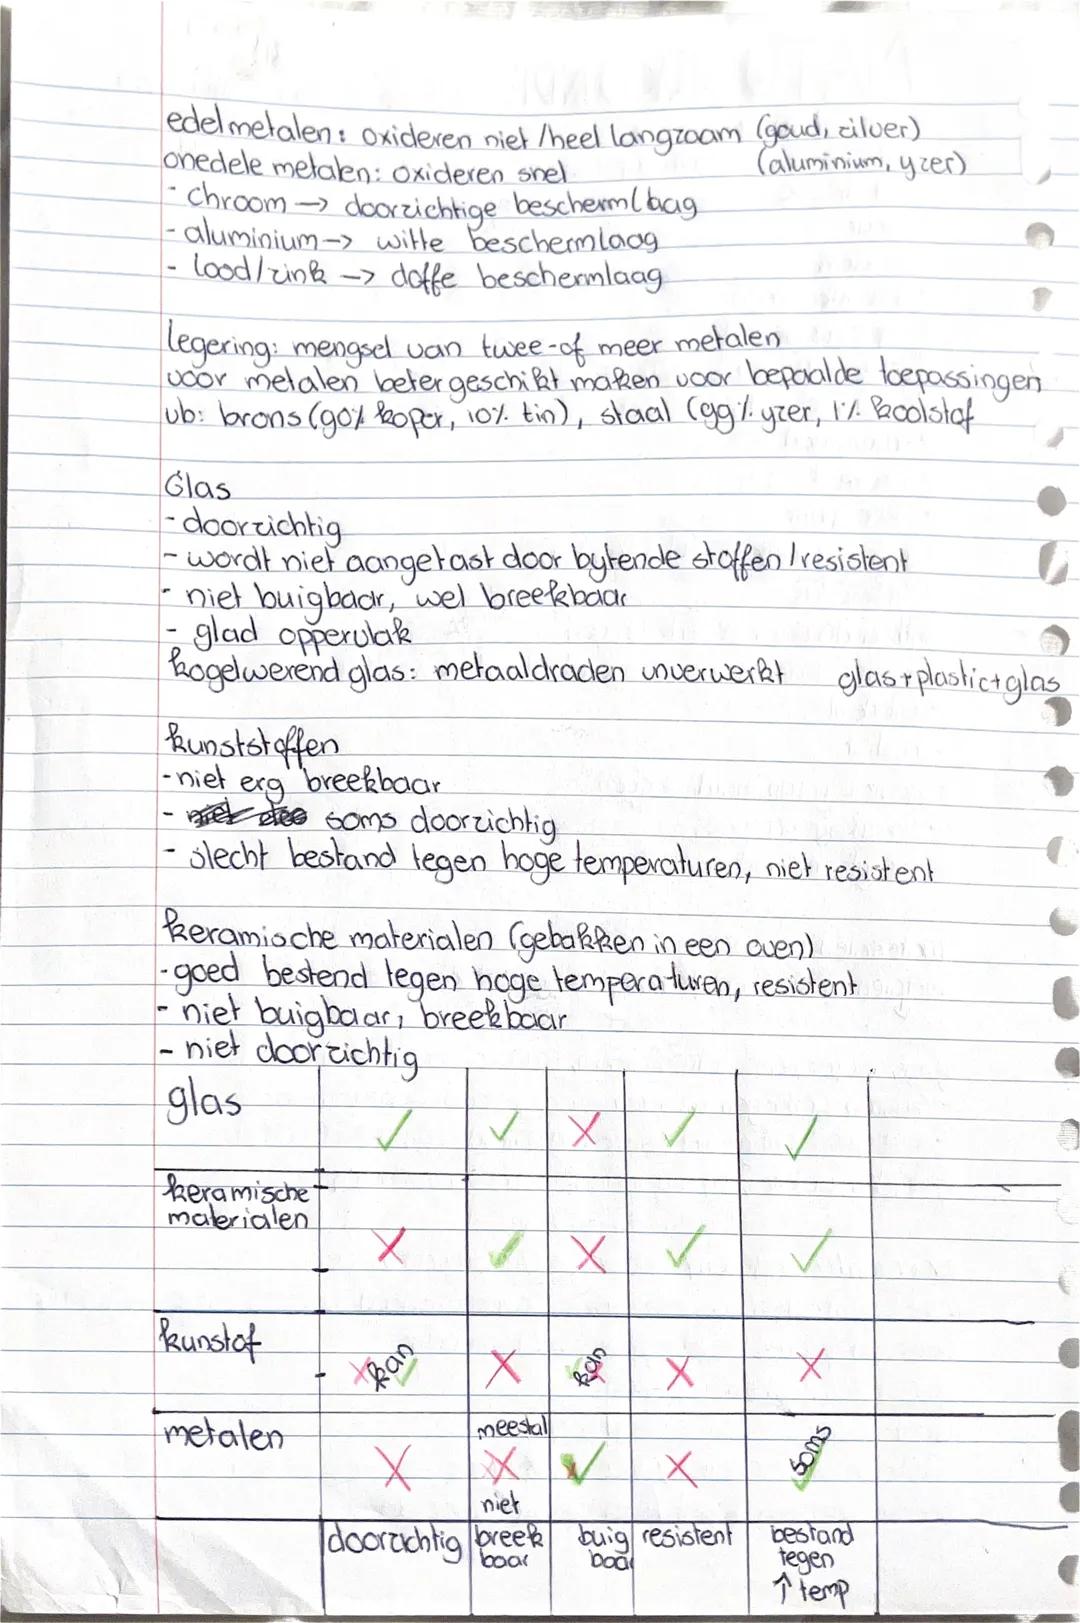 edelmetalen: oxideren niet /heel langzaam (goud, zilver)
onedele metalen: oxideren snel (aluminium, yzer)
- chroom → doorzichtige beschermlaag
- aluminium → witte beschermlaag
- lood/zink → doffe beschermlaag
legering: mengsel van twee-of meer metalen
voor metalen beter geschikt maken voor bepaalde toepassingen
vb: brons (90% koper, 10% tin), staal (99% yzer, 1% koolstof
Glas
- doorzichtig
- wordt niet aangetast door bytende stoffen / resistent
- niet buigbaar, wel breekbaar
- glad oppervlak
kogelwerend glas: metaaldraden inverwerkt glas+plastic+glas
kunststoffen
- niet erg breekbaar
- soms doorzichtig
- slecht bestand tegen hoge temperaturen, niet resistent
keramische materialen (gebakken in een oven)
- goed bestend tegen hoge temperaturen, resistent
- niet buigbaar, breekbaar
- niet doorzichtig
glas ✓ ✓ X ✓ ✓
keramische
materialen
X ✓ X ✓ ✓
kunstof kan X kan X X
metalen X meestal X niet ✓ X soms
doorzichtig breek buig resistent bestand
baar baar tegen
↑ temp